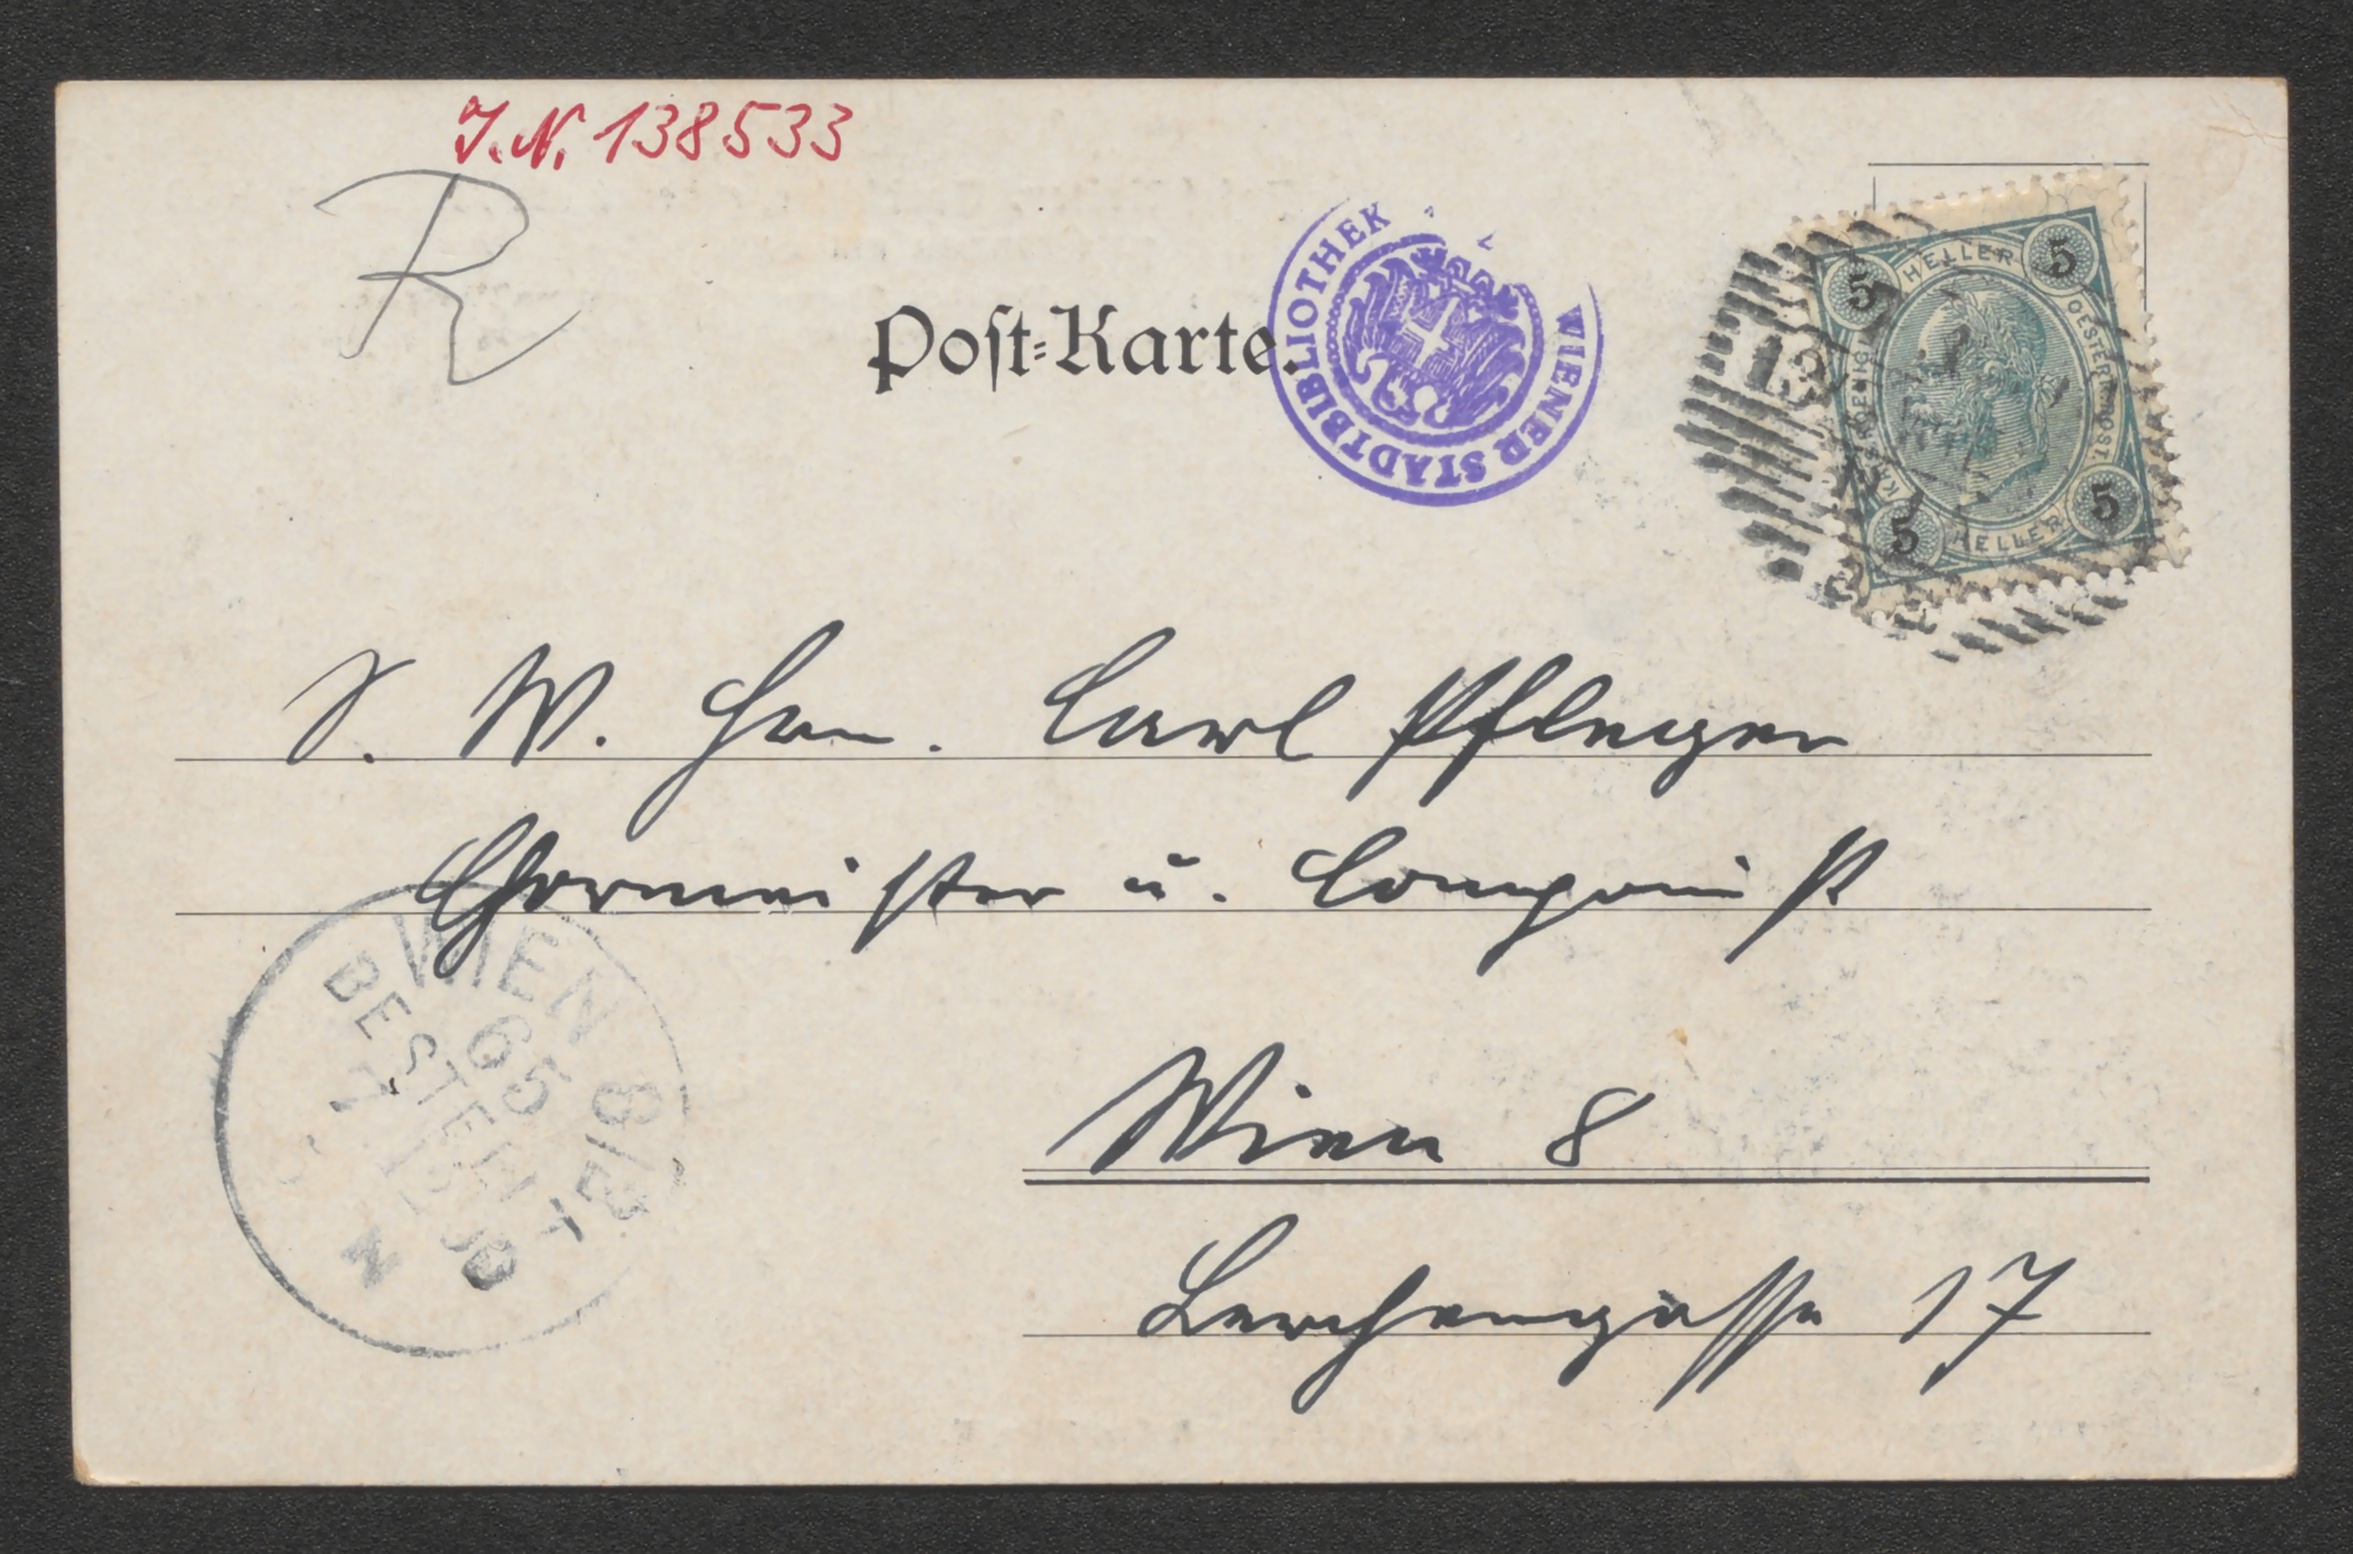 J.N. 138533
R
Post-Karte.
WIENER STADTBIBLIOTHEK
HELLER
5 5
KAIS. KOENIGL.
OESTERR. POST.
5 5
HELLER
13
S. W. Herrn. Carl Pfleger
Chormeister u. Componist
Wien 8
Lerchengasse 17
WIEN 8/2
65
BESTELLT